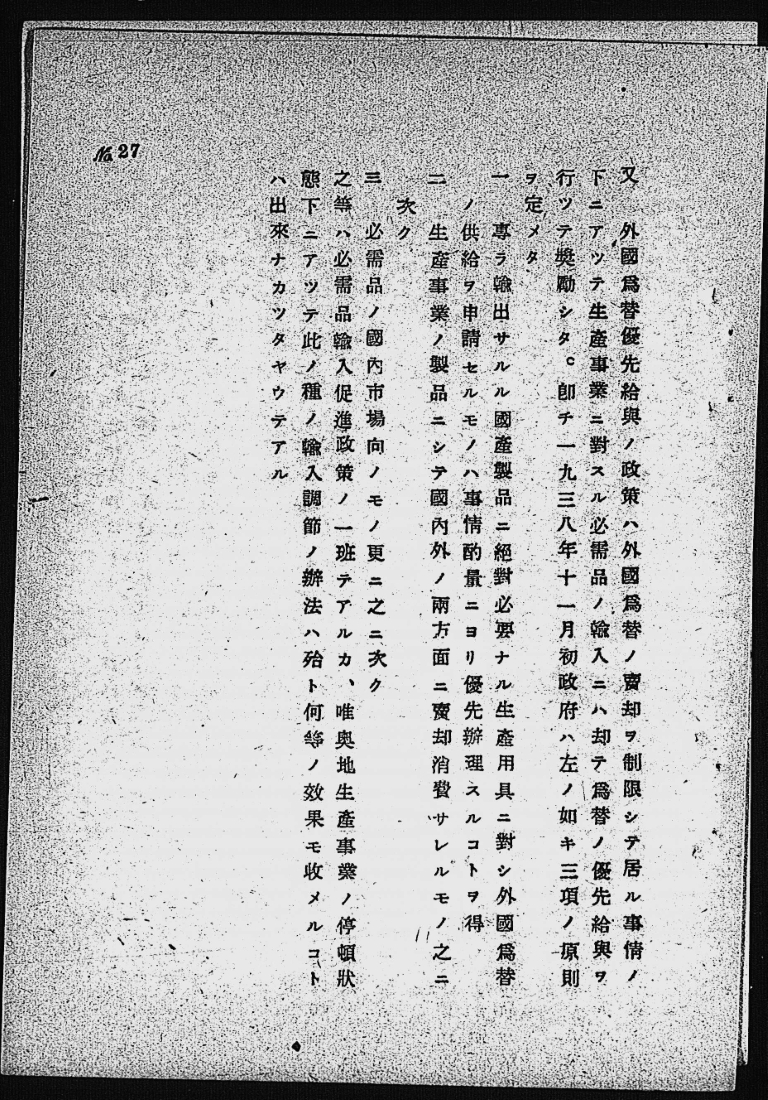 又　外國爲替優先給與ノ政策ハ外國爲替ノ賣却ヲ制限シテ居ル事情ノ
下ニアツテ生產事業ニ對スル必需品ノ輸入ニハ却テ爲替ノ優先給與ヲ
行ツテ奬勵シタ。卽チ一九三八年十一月初政府ハ左ノ如キ三項ノ原則
ヲ定メタ
一　專ラ輸出サルル國產製品ニ絕對必要ナル生產用具ニ對シ外國爲替
ノ供給ヲ申請セルモノハ事情酌量ニヨリ優先辦理スルコトヲ得
二　生產事業ノ製品ニシテ國內外ノ兩方面ニ賣却消費サレルモノ之ニ
次ク
三　必需品ノ國內市場向ノモノ更ニ之ニ次ク
之等ハ必需品輸入促進政策ノ一班テアルカ、唯奧地生產事業ノ停頓狀
態下ニアツテ此ノ種ノ輸入調節ノ辦法ハ殆ト何等ノ效果モ收メルコト
ハ出來ナカツタヤウテアル
No. 27